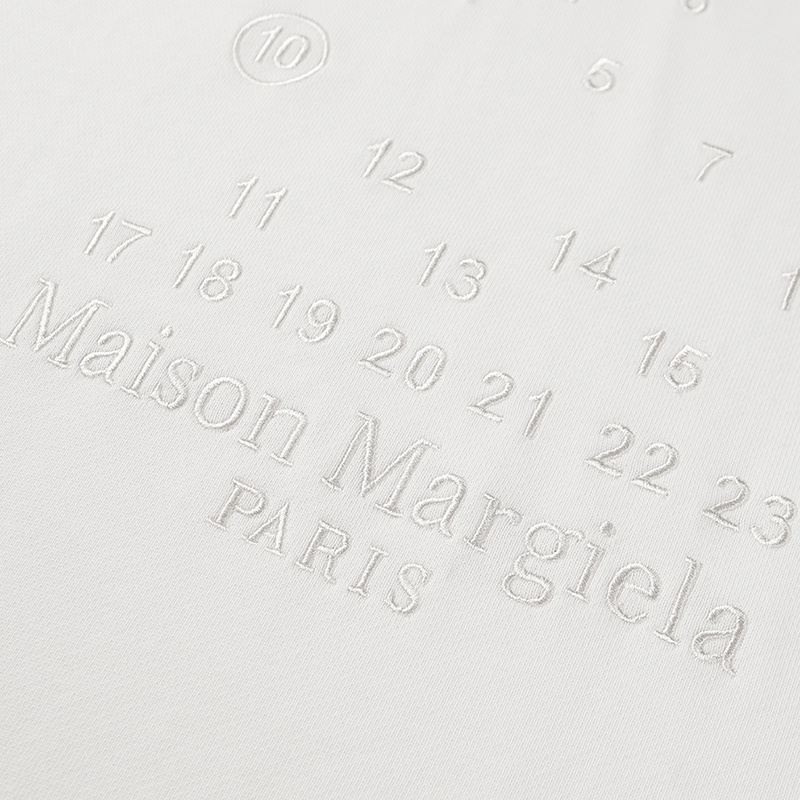 10
5 7
12 14
11 13 15
17 18 19 20 21 22 23
Maison Margiela
PARIS